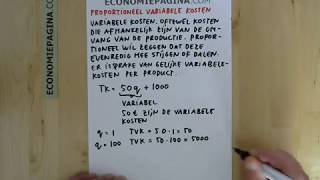 ECONOMIEPAGINA.COM
PROPORTIONEEL VARIABELE KOSTEN
VARIABELE KOSTEN. OFTEWEL KOSTEN
DIE AFHANKELIJK ZIJN VAN DE OM-
VANG VAN DE PRODUCTIE. PROPOR-
TIONEEL WIL ZEGGEN DAT DEZE
EVENREDIG MEE STIJGEN OF DALEN.
ER IS SPRAKE VAN GELIJKE VARIABELE-
KOSTEN PER PRODUCT.
TK = 50q + 1000
VARIABEL
50q ZIJN DE VARIABELE
KOSTEN
q = 1 TVK = 50·1 = 50
q = 100 TVK = 50·100 = 5000